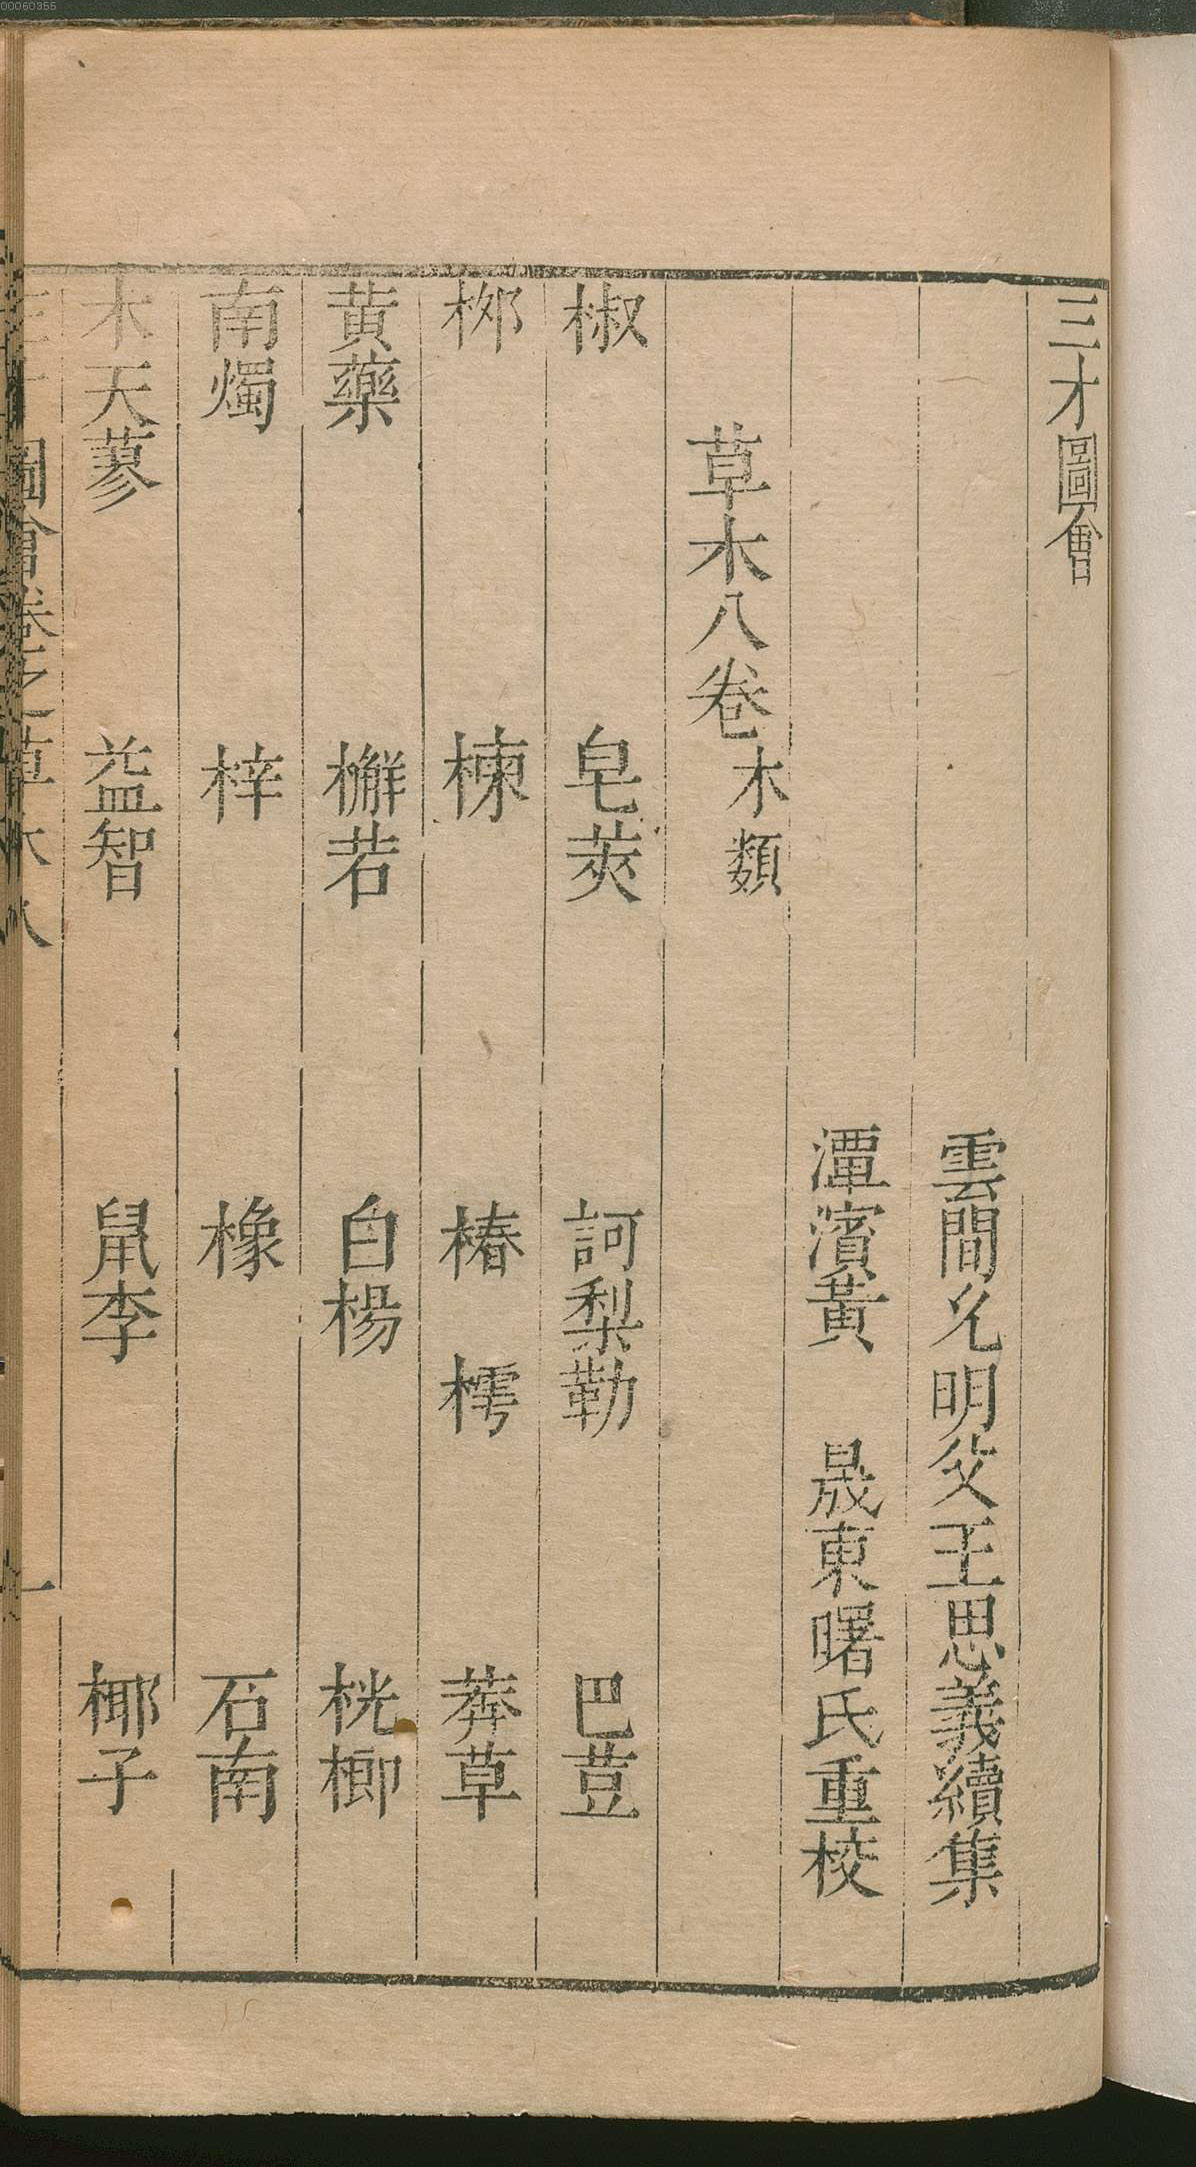 三才圖會
雲間允明父王思義續集
潭濱黃　晟東曙氏重校
草木八卷 木類
椒　皂莢　訶梨勒　巴荳
栁　楝　椿　樗　莽草
黃藥　槲若　白楊　桄榔
南燭　梓　橡　石南
木天蓼　益智　鼠李　椰子
圖會卷之草木八
一
00060355